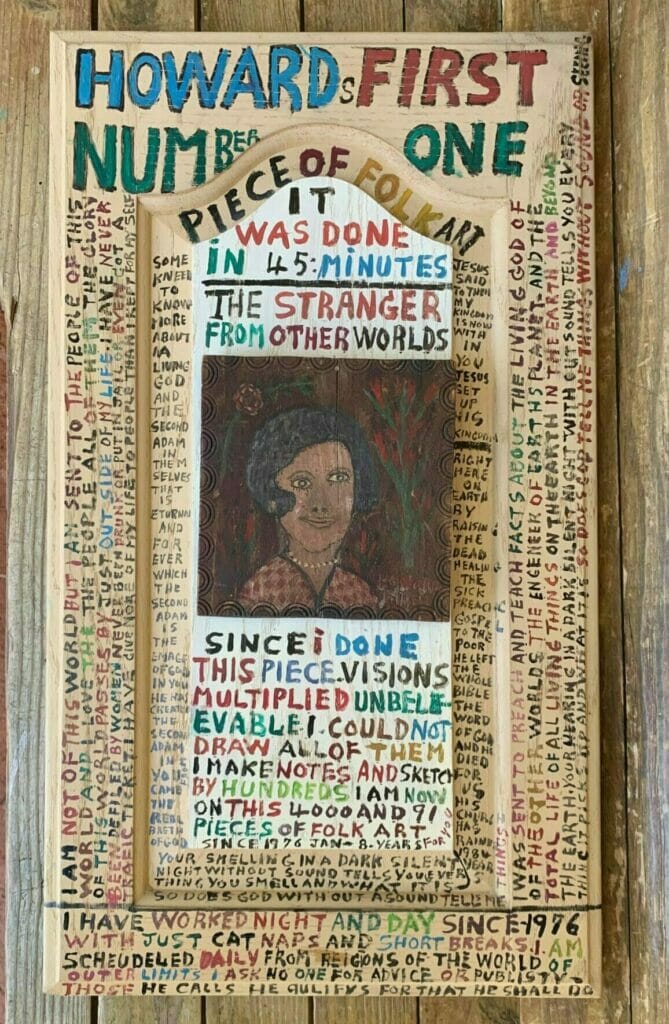 HOWARDs FIRST
NUMBER ONE
PIECE OF FOLK ART
IT
WAS DONE
iN 45:MINUTES
THE STRANGER
FROM OTHER WORLDS
SINCE i DONE
THIS PIECE-VISIONS
MULTIPLIED UNBELE-
EVABLE I. COULD NOT
DRAW ALL OF THEM
I MAKE NOTES AND SKETCH
BY HUNDREDS I AM NOW
ON THIS 4000 AND 91
PIECES OF FOLK ART
SINCE 1976 JAN-8-YEARS FOR YOU
SOME
KNEED
TO
KNOW
MORE
ABOUT
A
LIVING
GOD
AND
THE
SECOND
ADAM
IN
THEM
SELVES
THAT
IS
ETURNAL
AND
FOR
EVER
WHICH
THE
SECOND
ADAM
IS
THE
EMAGE
OF GOD
IN YOU
HE HAS
CREATED
THE
SECOND
ADAM
IN
YOU
CAME
THE
REAL
BRETH
OF GOD
JESUS
SAID
TO THEM
MY
KINGDOM
IS NOW
WITH
IN
YOU
JESUS
SET
UP
HIS
KINGDOM
RIGHT
HERE
ON
EARTH
BY
RAISIN
THE
DEAD
HEALIN
THE
SICK
PREACH
GOSPE
TO THE
POOR
HE LEFT
THE
WHOLE
BIBLE
THE
WORD
OF GOD
AND HE
DIED
FOR
US
HIS
CHURC
HAS
YOUR SMELLING IN A DARK SILENT
NIGHT WITHOUT SOUND TELLS YOU EVERY
THING YOU SMELL AND WHAT IT IS
SO DOES GOD WITH OUT A SOUND TELL ME THINGS
I AM NOT OF THIS WORLD BUT I AM SENT TO THE PEOPLE OF THIS
WORLD AND I LOVE THE THE PEOPLE ALL OF THEM THE GLORY
OF THIS WORLD PASSES BY JUST OUT SIDE OF MY LIFE I HAVE NEVER
BEEN DEFILED BY WOMEN NEVER BEEN DRUNK OR PUT IN JAIL OR EVEN GOT A
TRAFIC TICKT I HAVE GIVE MORE OF MY LIFE TO PEOPLE THAN I KEPT FOR MY SELF
I WAS SENT TO PREACH AND TEACH FACTS ABOUT THE LIVING GOD OF
OF THE OTHER WORLDS THE ENGENEER OF EARTHS PLANET AND THE
TOTAL LIFE OF ALL LIVING THINGS ON THE EARTH IN THE EARTH AND BEYOND
THE EARTH, YOUR HEARING IN A DARK SILENT NIGHT WITH OUT SOUND TELLS YOU EVERY
THING IT PICKS UP AND WHAT IT IS SO DOES GOD TELL ME THINGS WITHOUT SOUND OR SEEING
I HAVE WORKED NIGHT AND DAY SINCE-1976
WITH JUST CAT NAPS AND SHORT BREAKS. I AM
SCHEUDELED DAILY FROM REIGONS OF THE WORLD OF
OUTER LIMITS I ASK NO ONE FOR ADVICE OR PUBLISTY-
THOSE HE CALLS HE QULIFYS FOR THAT HE SHALL DO